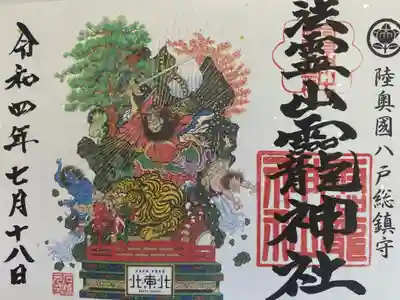 陸奥國八戸総鎮守
法霊山龗神社
令和四年七月十八日
北東北